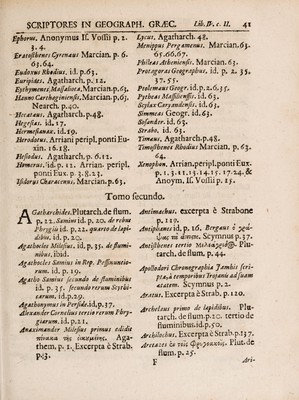 SCRIPTORES IN GEOGRAPH. GRÆC. Lib.D. c. II. 41
Ephorus. Anonymus If. Vossii p. 2.
3. 4.
Eratosthenes Cyrenæus Marcian. p. 6.
63. 64.
Eudoxus Rhodius, id. p. 63.
Euripides, Agatharch. p. 12.
Euthymenes Massiliota, Marcian. p. 63.
Hanno Carthaginiensis, Marcian. p. 65.
Nearch. p. 40.
Hecatæus, Agatharch. p. 48.
Hegesias. id. 17.
Hermesianax. id. 19.
Herodotus. Arriani peripl. ponti Eu-
xin. 16. 18.
Hesiodus. Agatharch. p. 6. 12.
Homerus. id. p. 12. Arrian. peripl.
ponti Eux. p. 3. 8. 23.
Isidorus Characenus, Marcian. p. 63.
Lycus. Agatharch. 48.
Menippus Pergamenus. Marcian. 63.
65. 66. 67.
Phileas Atheniensis. Marcian. 63.
Protagoras Geographus. id. p. 2. 35.
37. 55.
Ptolemæus Geogr. id. p. 2. 6. 35.
Pytheas Massiliensis. id. 63.
Scylax Caryandensis. id. 63.
Simmeas Geogr. id. 63.
Sosander. id. 63.
Strabo. id. 63.
Timæus, Agatharch. p. 48.
Timosthenes Rhodius Marcian. 63.
64.
Xenophon. Arrian. peripl. ponti Eux.
p. 1. 3. 11. 13. 14. 15. 17. 24. &
Anonym. If. Vossii p. 15.
Tomo secundo.
Agatharchides. Plutarch. de flum.
p. 22. Samius id. p. 20. de rebus
Phrygiis id. p. 22. quarto de lapi-
dibus. id. p. 20.
Agathocles Milesius. id. p. 35. de flumi-
nibus, ibid.
Agathocles Samius in Rep. Pessinuntio-
rum. id. p. 19.
Agatho Samius secundo de fluminibus
id. p. 35. secundo rerum Scythi-
carum. id. p. 29.
Agathonymus in Perside. id. p. 37.
Alexander Cornelius tertio rerum Phry-
giarum. id. p. 21.
Anaximander Milesius primus edidit
Agathem. p. 1. Excerpta è Strab.
p. 3.
Antimachus. excerpta è Strabone
p. 119.
Antiphanes id. p. 16. Scymnus p. 37.
Antisthenes tertio Plut. de flum. p. 44.
Apollodori Chronographia Jambis scri-
pta, à temporibus Trojani ad suam
ætatem. Scymnus p. 2.
Aratus. Excerpta è Strab. p. 120.
Archelaus primo de lapidibus. Plu-
tarch. de flum. p. 20. tertio de
fluminibus. id. p. 50.
Archilochus. Excerpta è Strab. p. 137.
Aretazes Plut. de
flum. p. 25.
F Ari-